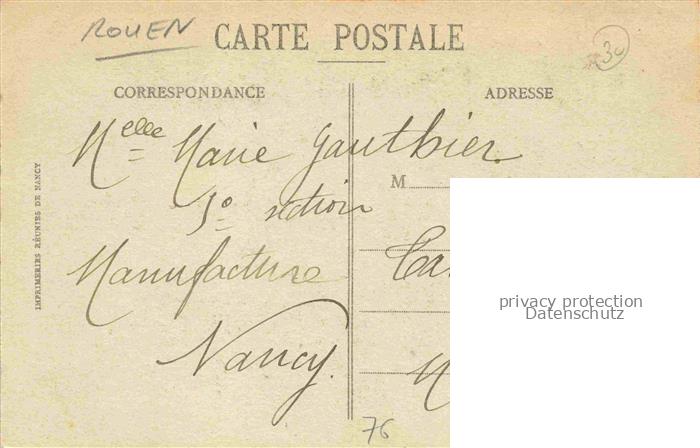 ROUEN
CARTE POSTALE
30
CORRESPONDANCE
ADRESSE
Melle Marie Gauthier
M
section
Manufacture
Nancy.
IMPRIMERIES RÉUNIES DE NANCY
privacy protection
Datenschutz
76